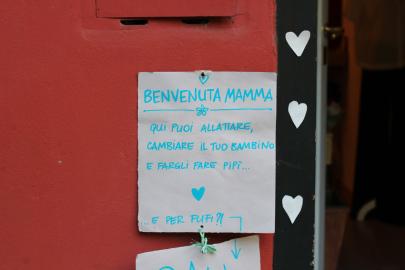 BENVENUTA MAMMA
QUI PUOI ALLATTARE,
CAMBIARE IL TUO BAMBINO
E FARGLI FARE PIPÌ...
...E PER FUFI?!